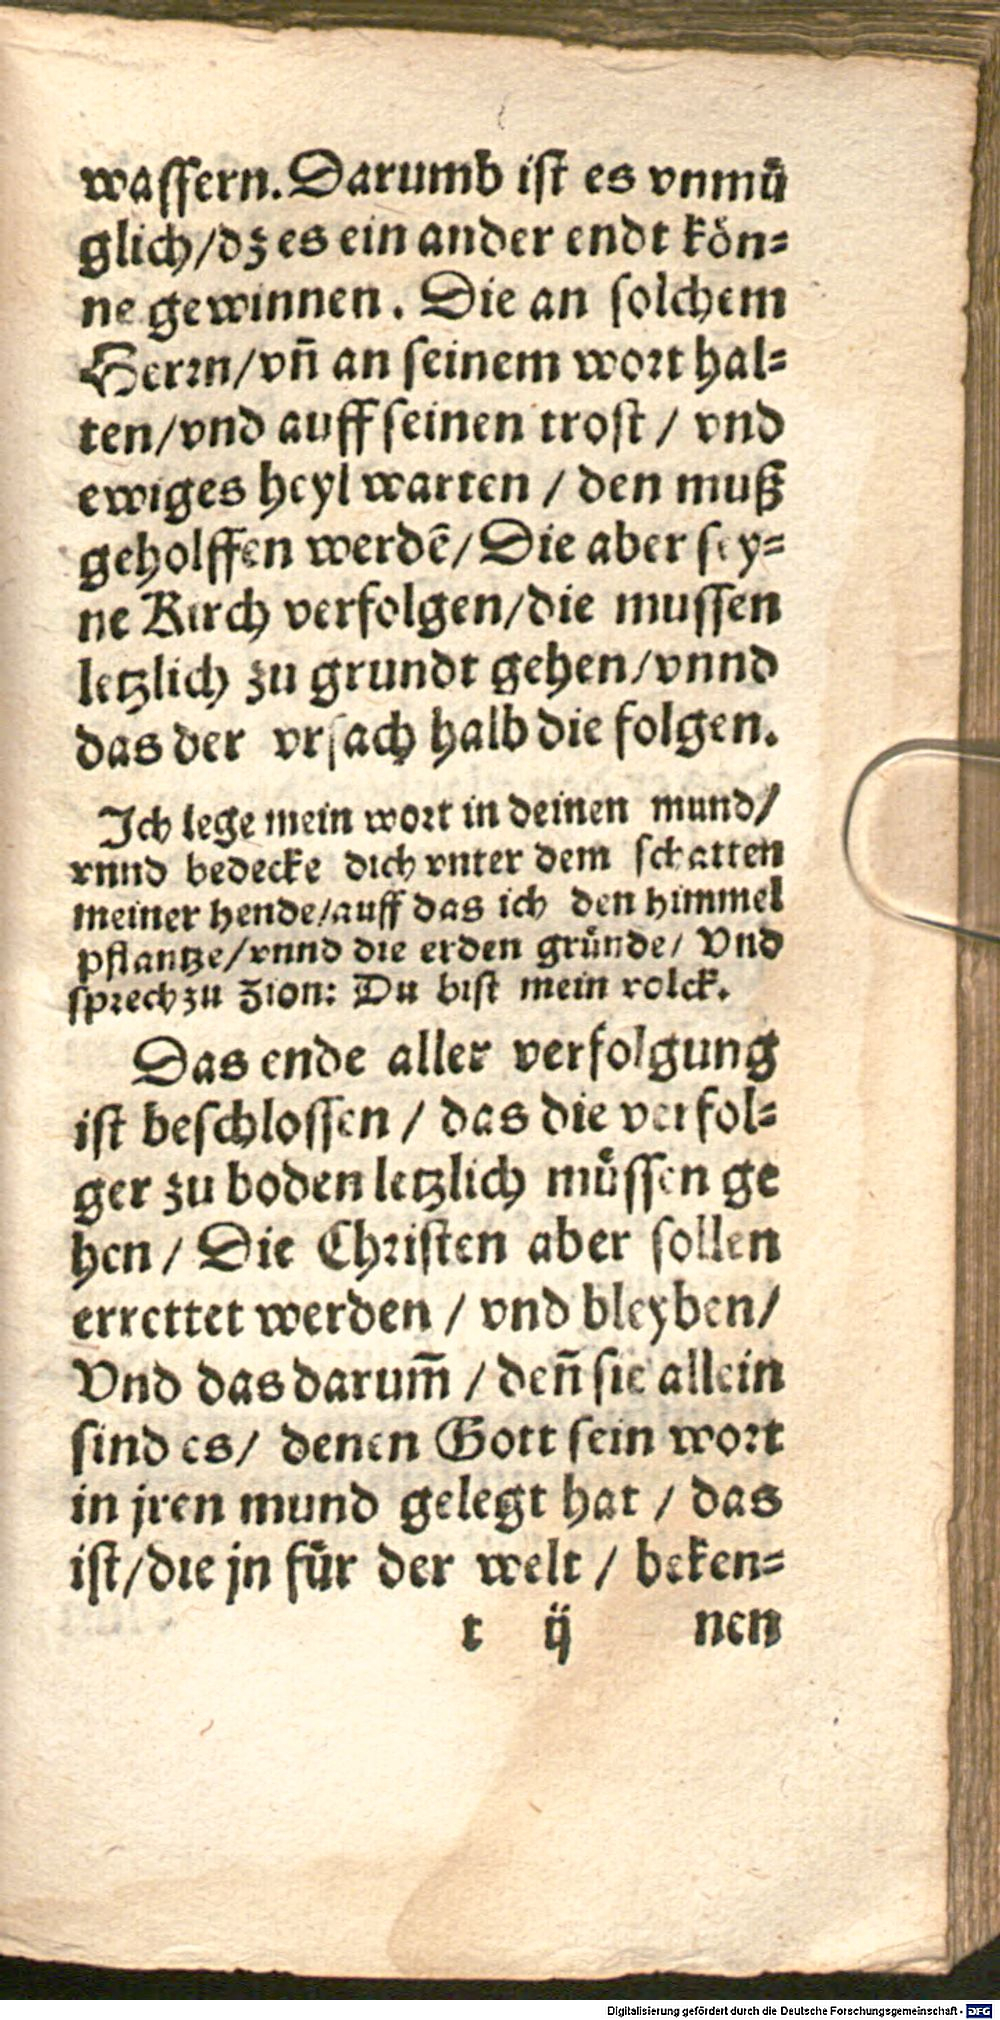 wassern. Darumb ist es vnmuͤ
glich/dz es ein ander endt koͤn=
ne gewinnen. Die an solchem
Herrn/vn̄ an seinem wort hal=
ten/vnd auff seinen trost / vnd
ewiges heyl warten / den muß
geholffen werdē/ Die aber sey=
ne Kirch verfolgen/die mussen
letzlich zu grundt gehen/vnnd
das der vrsach halb die folgen.
Ich lege mein wort in deinen mund/
vnnd bedecke dich vnter dem schatten
meiner hende/auff das ich den himmel
pflantze/vnnd die erden gruͤnde/ Vnd
sprech zu Zion: Du bist mein volck.
Das ende aller verfolgung
ist beschlossen / das die verfol=
ger zu boden letzlich muͤssen ge
hen / Die Christen aber sollen
errettet werden / vnd bleyben/
Vnd das darum̄ / den̄ sie allein
sind es/ denen Gott sein wort
in jren mund gelegt hat / das
ist/die jn fuͤr der welt / beken=
t ij nen
Digitalisierung gefördert durch die Deutsche Forschungsgemeinschaft - DFG